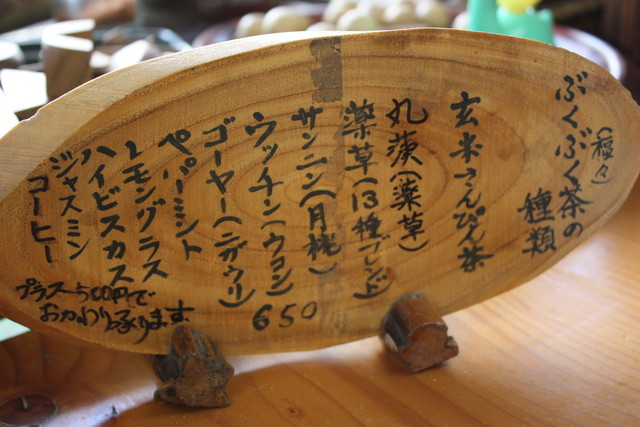 ぶくぶく茶の
(種々)
種類
玄米さんぴん茶
丸蓂(薬草)
薬草(13種ブレンド)
サンニン(月桃)
ウッチン(ウコン)
650
ゴーヤー(ニガウリ)
ペパーミント
レモングラス
ハイビスカス
ジャスミン
コーヒー
プラス500円で
おかわり承ります